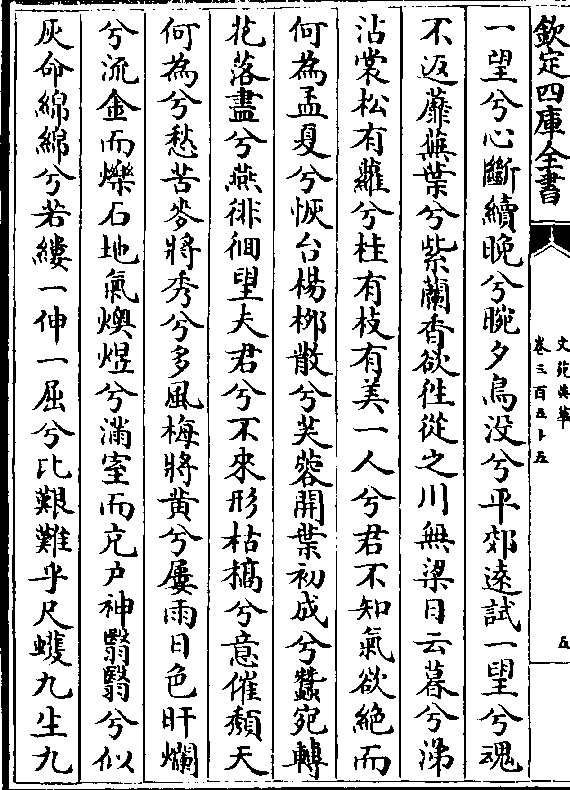 欽定四庫全書
文苑英華
卷三百五十五
五
一望兮心斷續晚兮晼夕鳥没兮平郊遠試一望兮魂
不返蘼蕪葉兮紫蘭香欲徃從之川無梁日云暮兮涕
沾裳松有蘿兮桂有枝有美一人兮君不知氣欲絶而
何為孟夏兮恢台楊栁散兮芙蓉開葉初成兮蠶宛轉
花落盡兮燕徘徊望夫君兮不來形枯槁兮意催頽天
何為兮愁苦麥將秀兮多風梅將黄兮屢雨日色旰爛
兮流金而爍石地氣燠煜兮滿室而充户神翳翳兮似
灰命綿綿兮若縷一伸一屈兮比艱難乎尺蠖九生九